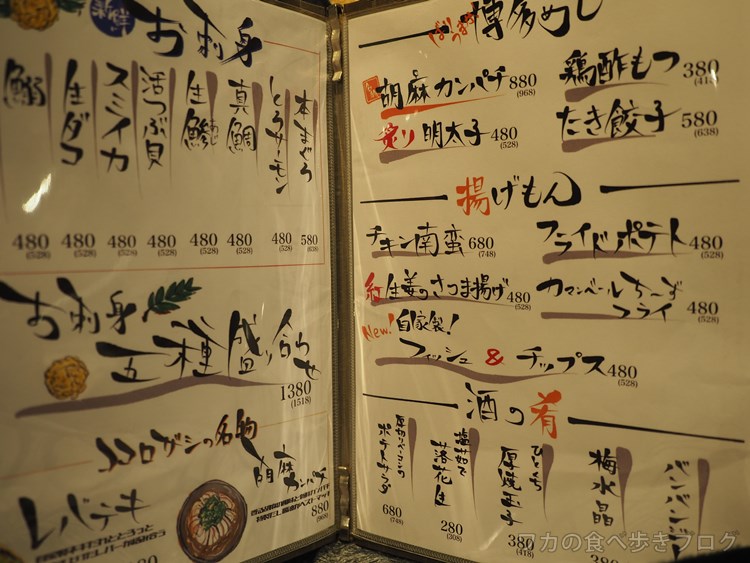 新鮮
お刺身
本まぐろ
580
(638)
とろサーモン
480
(528)
真鯛
480
(528)
生鯵
480
(528)
活つぶ貝
480
(528)
スミイカ
480
(528)
生ダコ
480
(528)
480
(528)
お刺身
五種盛り合わせ
1380
(1518)
コロログシの名物
レバテキ
胡麻カンパチ
880
(968)
博多めし
胡麻カンパチ 880
(968)
炙り明太子 480
(528)
鶏酢もつ 380
(418)
たき餃子 580
(638)
揚げもん
チキン南蛮 680
(748)
紅生姜のさつま揚げ 480
(528)
New! 自家製!
フィッシュ & チップス 480
(528)
フライドポテト 480
(528)
カマンベールち〜ず
フライ 480
(528)
酒の肴
厚切りベーコンの
ポテトサラダ
680
(748)
塩茹で
落花生
280
(308)
ひとくち
厚焼玉子
380
(418)
梅水晶
380
バンバンジー
力の食べ歩きブログ